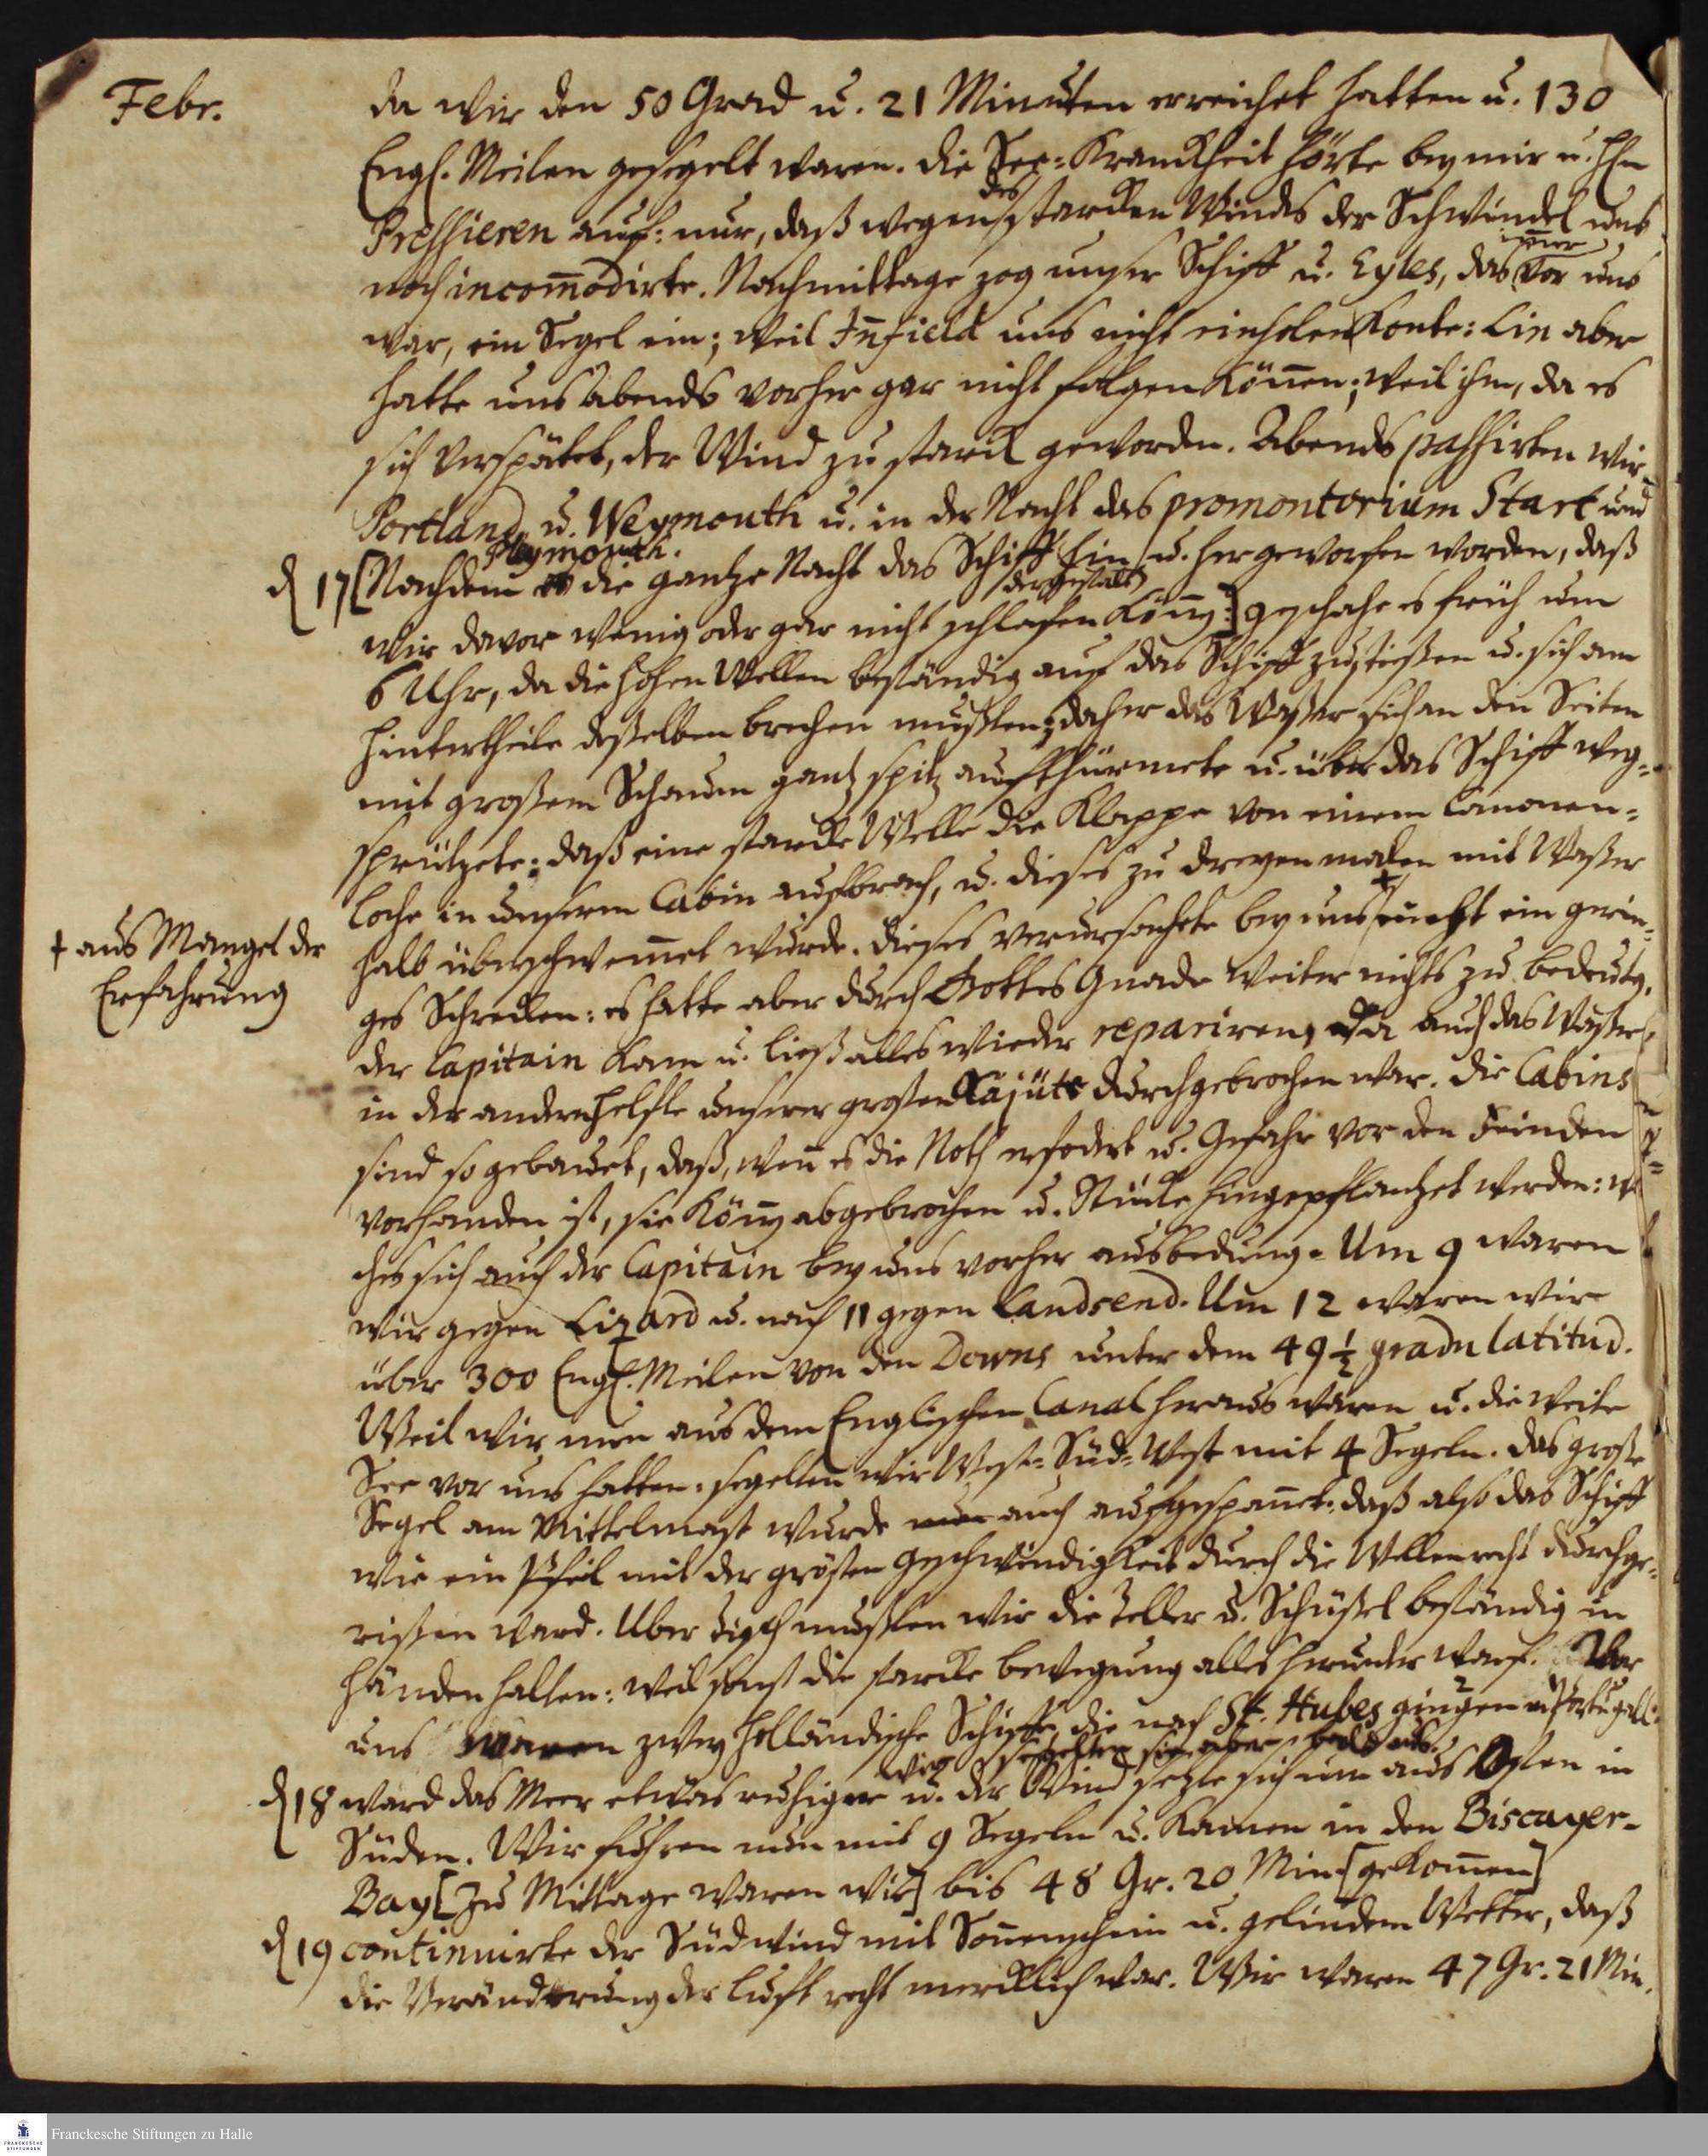 Febr.
da wir den 50 Grad u. 21 Minuten erreichet hatten u. 130
Engl. Meilen gesegelt waren. die See-Kranckheit hörte bey mir u. Hn
Pressieren auf: nur, daß wegen des starcken Windes der Schwindel uns
noch incom̄odirte. Nachmittage zog unser Schiff u. Eyles, das im̄er vor uns
war, ein Segel ein; weil Ēnfield uns nicht einholen Konte: Lin aber
hatte uns Abends vorher gar nicht folgen Kön̄en; weil ihm, da es
sich verspätet, der Wind zu starck geworden. Abends passirten wir
Portland, u. Weymouth u. in der Nacht das promontorium Start und
Pleymouth.
d 17 [Nachdem die gantze Nacht das Schiff hin u. her geworfen worden, daß
wir davor wenig oder gar nicht schlafen Kön̄:] geschahe es dergestalt früh um
6 Uhr, da die hohen Wellen beständig auf das Schiff zustießen u. sich am
Hintertheile deßelben brechen mußten; daher das Waßer sich an den Seiten
mit großem Schaum gantz spitz aufthürmete u. über das Schiff weg-
sprützete: daß eine starcke Welle die Klappe von einem Canonen-
loche in unserm Cabin aufbrach, u. dieses zu dreyenmalen mit Waßer
halb überschwem̄et wurde. dieses verursachete bey uns + nicht ein gerin-
+ aus Mangel der
Erfahrung
ges Schrecken: es hatte aber durch Gottes Gnade weiter nichts zu bedeuten,
der Capitain kam u. ließ alles wieder repariren, da auch das Waßer
in der andern Helfte unserer großen Kajüte durchgebrochen war. die Cabins
sind so gebauet, daß, wen̄ es die Noth erfodert u. Gefahr vor den Feinden
vorhanden ist, sie Kön̄: abgebrochen u. Stücke hingepflantzet werden: wel-
ches sich auch der Capitain bey uns vorher ausbedung. Um 9 waren
wir gegen Lizard u. nach 11 gegen Landsend. Um 12 waren wir
über 300 Engl. Meilen von den Downs unter dem 49½ gradu latitud.
Weil wir nun aus dem Englischen Canal heraus waren u. die weite
See vor uns hatten: segelten wir West-Süd-West mit 4 Segeln. das große
Segel am Mittelmast wurde nun auch aufgespan̄et: daß also das Schiff
wie ein Pfeil mit der grösten Geschwindigkeit durch die Wellen recht durchge-
rißen ward. Uber Tisch mußten wir die Teller u. Schüßel beständig in
Händen halten: weil sonst die starcke bewegung alles herunter warf. Vor
uns waren zwey Holländische Schiffe, die nach St. Hubes gingen in Portugall:
wir segelten sie aber bald aus.
d 18 ward das Meer etwas ruhiger u. der Wind setzte sich um aus Osten in
Süden. Wir fuhren nun mit 9 Segeln u. kamen in den Biscayer-
Bay [Zu Mittage waren wir] bis 48 Gr. 20 Min [gekom̄en]
d 19 continuirte der Südwind mit Son̄enschein u. gelindem Wetter, daß
die Veränderung der Luft recht mercklich war. Wir waren 47 Gr. 21 Min.
Franckesche Stiftungen zu Halle